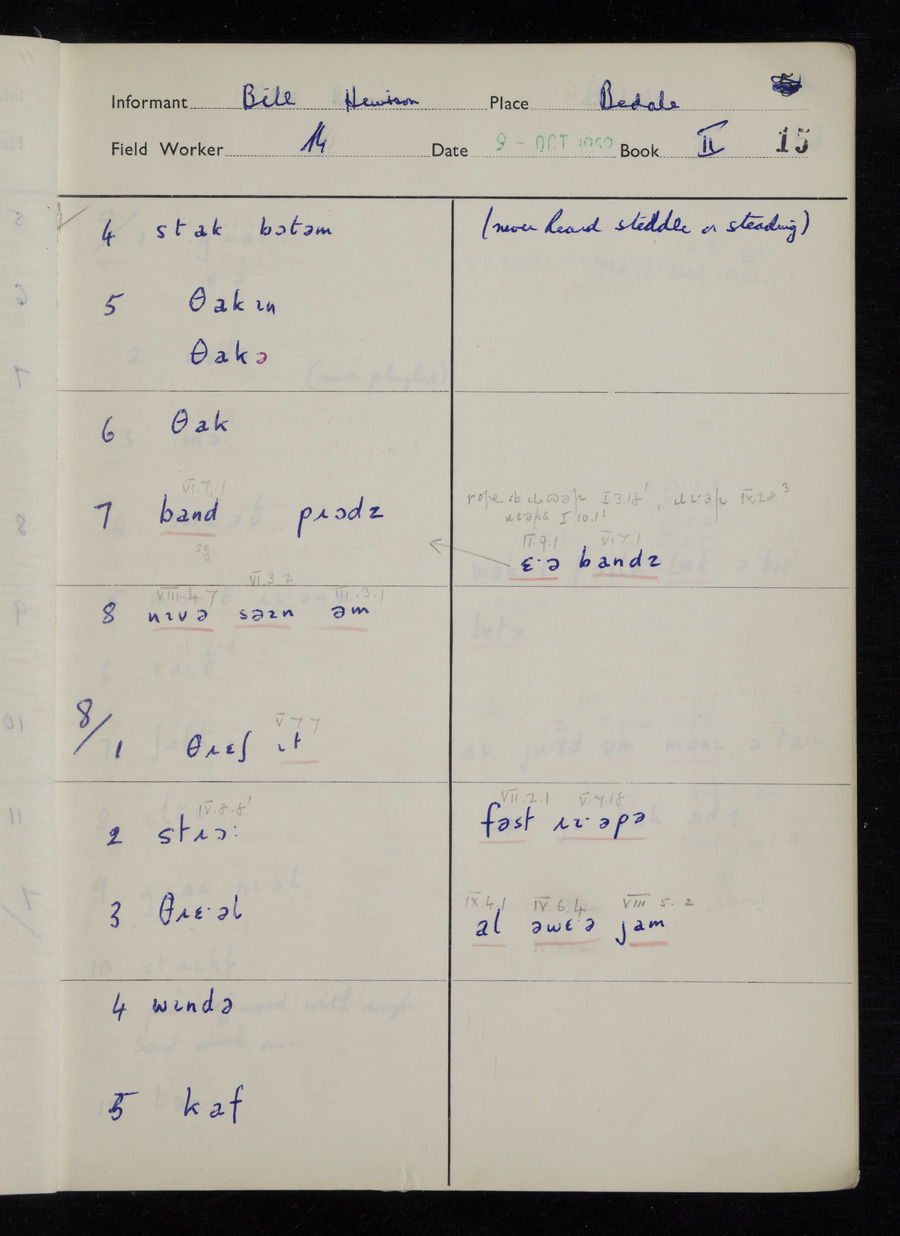 Informant Bill Hewison Place Bedale
Field Worker Date 9 - OCT 1952 Book II 15
4 stak bɔtəm (never heard steddle or steading)
5 θakɪn
θakə
6 θak
VI.7.1
7 band pɹɔdz
sg.
I 3.18¹ , IX.2.8³
I.10.1²
II.9.1 VI 7.1
ɛ·ə bandz
VIII.4.7 VI.3.2 III.3.1
8 nɪvə səɪn əm
V 7 7
8/1 θɹɛʃ ɪt
IV.8.8¹ VII.2.1 V.7.18
2 stɹɔ: fəst ɹɪ·əpə
IX 4.1 IV.6.4 VIII 5.2
3 θɹɛ·əl al əwɛ·ə jam
4 wɪndə
5 kaf